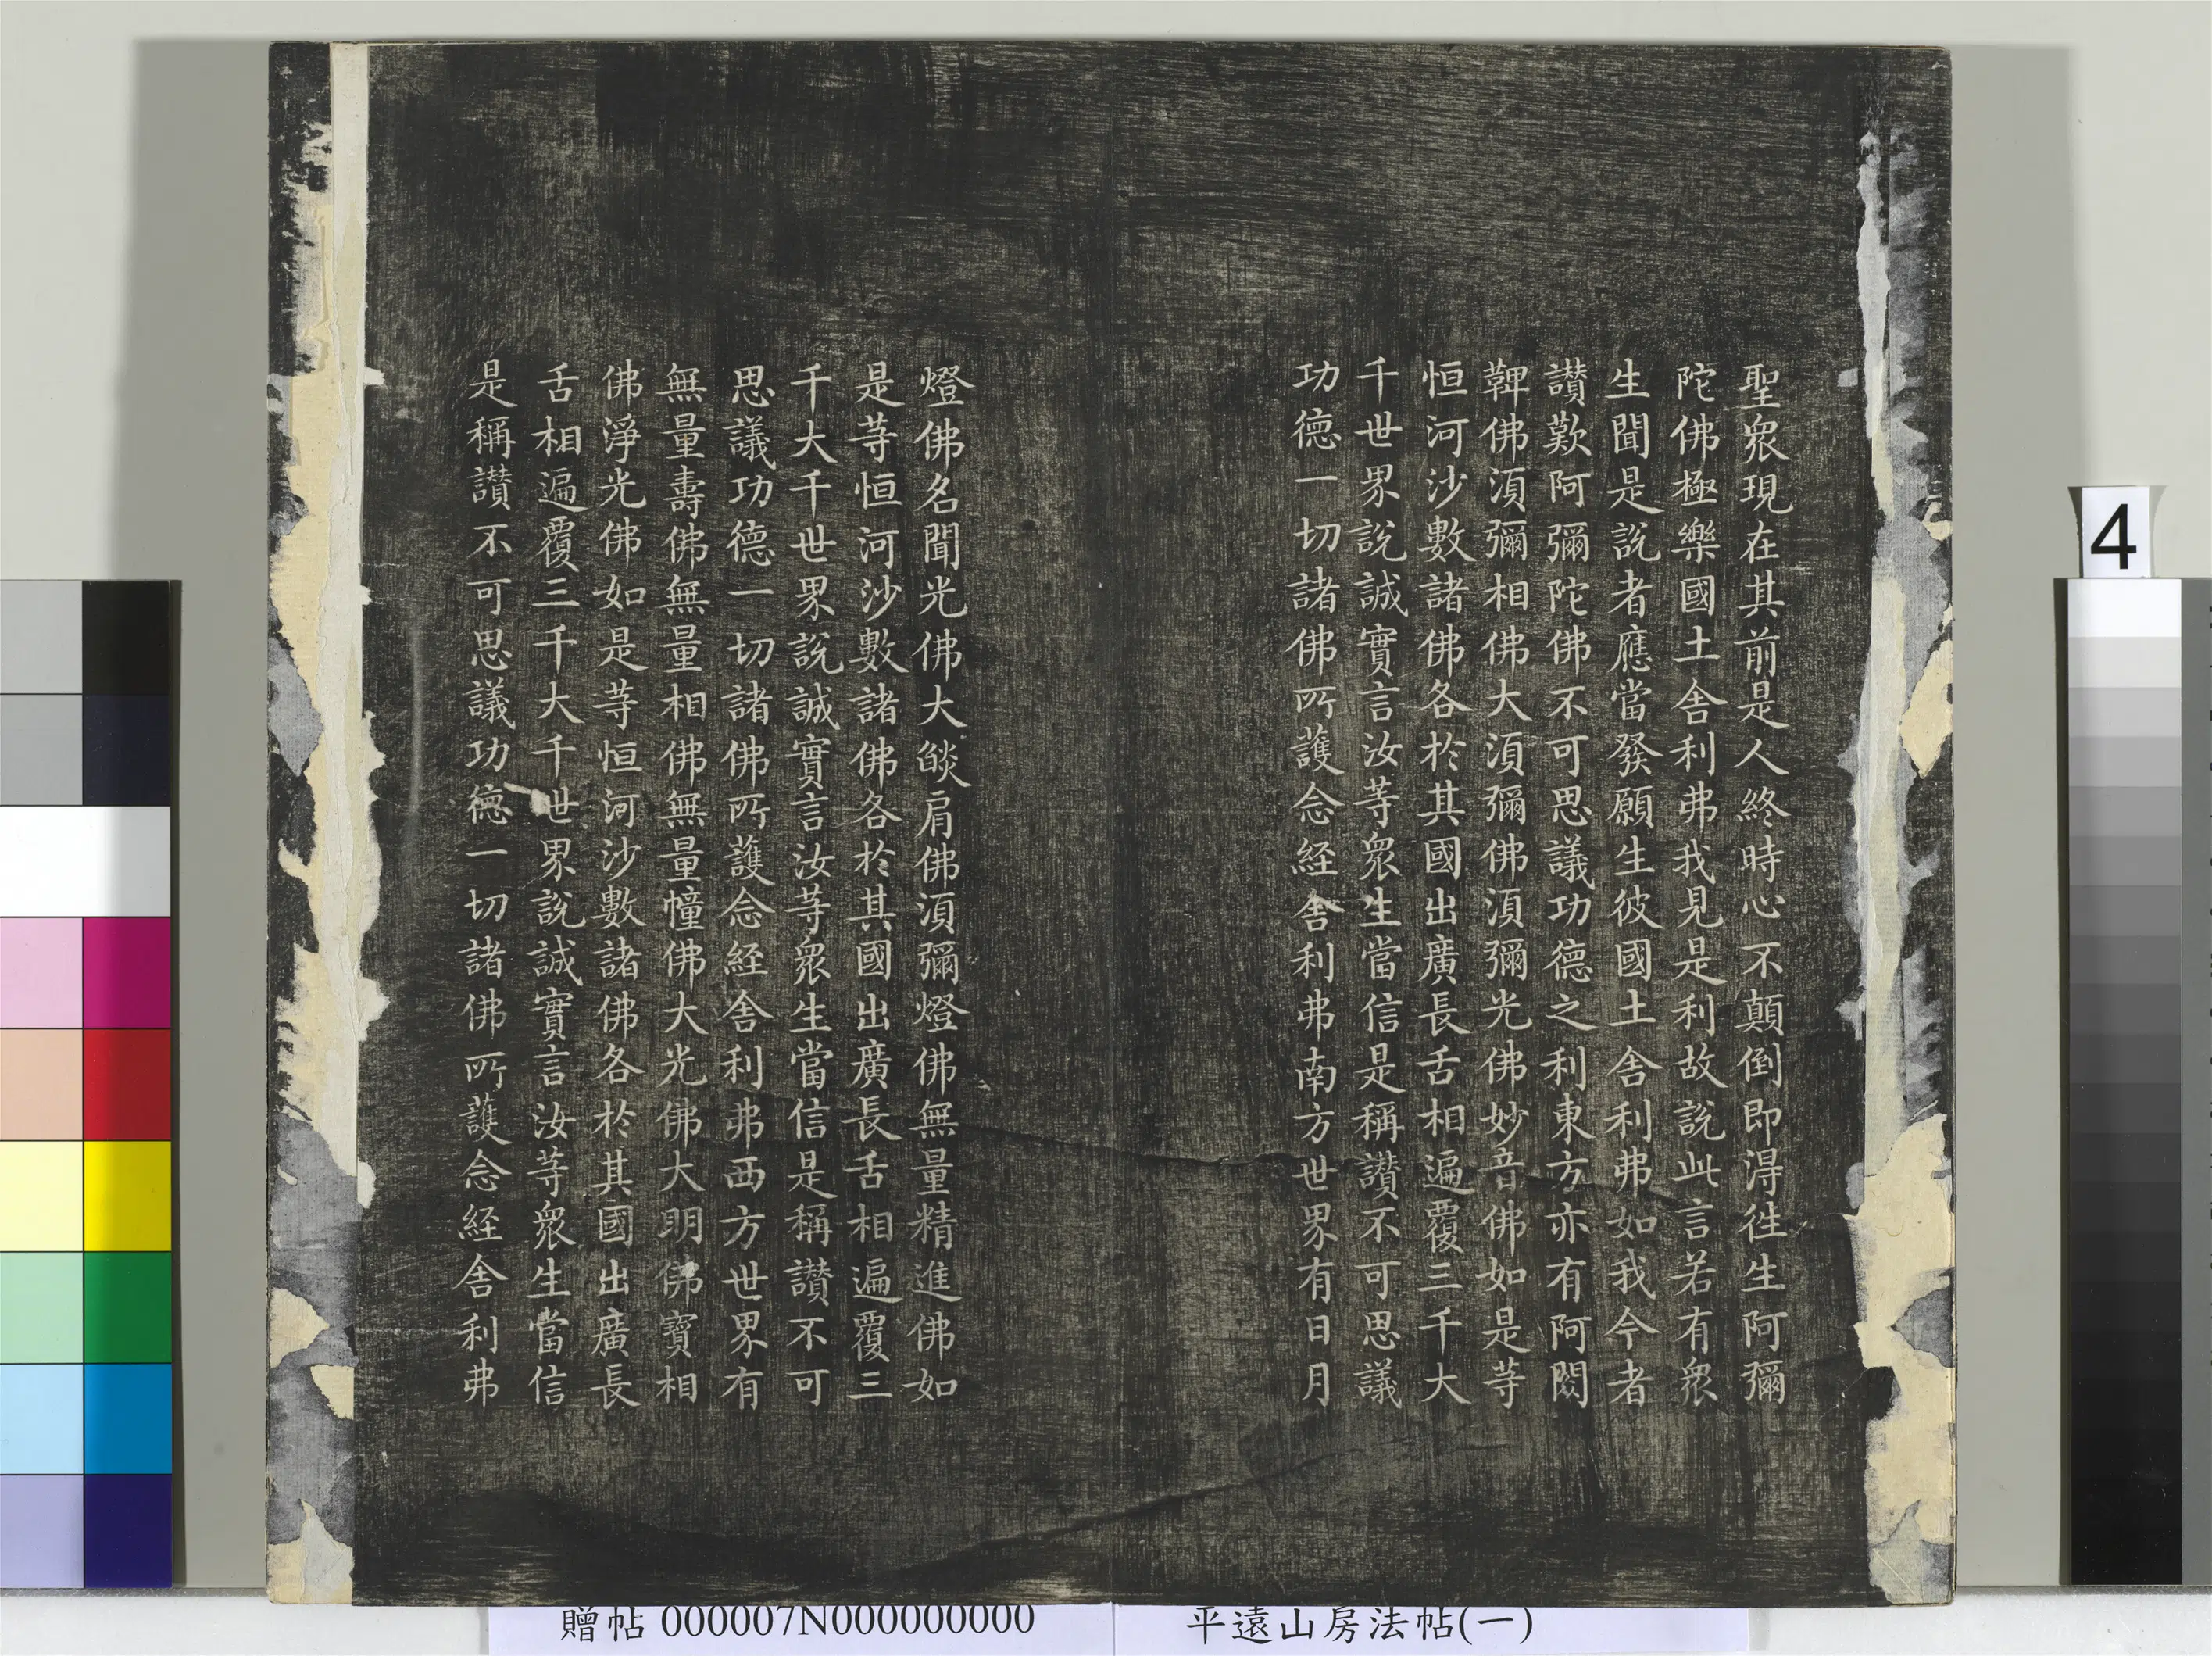 聖眾現在其前是人終時心不顛倒即得徃生阿彌
陀佛極樂國土舍利弗我見是利故說此言若有眾
生聞是說者應當發願生彼國土舍利弗如我今者
讃歎阿彌陀佛不可思議功德之利東方亦有阿閦
鞞佛湏彌相佛大湏彌佛湏彌光佛妙音佛如是等
恒河沙數諸佛各於其國出廣長舌相遍覆三千大
千世界說誠實言汝等眾生當信是稱讃不可思議
功德一切諸佛所護念経舍利弗南方世界有日月
燈佛名聞光佛大燄肩佛湏彌燈佛無量精進佛如
是等恒河沙數諸佛各於其國出廣長舌相遍覆三
千大千世界說誠實言汝等眾生當信是稱讃不可
思議功德一切諸佛所護念経舍利弗西方世界有
無量壽佛無量相佛無量幢佛大光佛大明佛寶相
佛淨光佛如是等恒河沙數諸佛各於其國出廣長
舌相遍覆三千大千世界說誠實言汝等眾生當信
是稱讃不可思議功德一切諸佛所護念経舍利弗
4
贈帖 000007N000000000
平遠山房法帖(一)